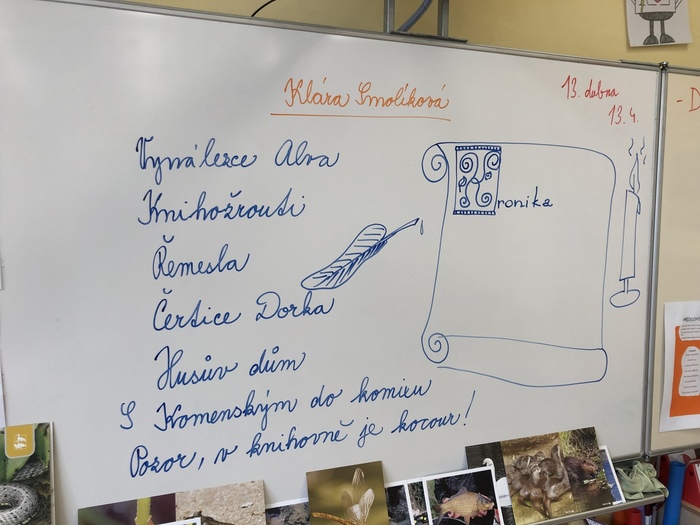 Klára Smolíková
13. dubna
13. 4.
- D
Vynálezce Alva
Knihožrouti
Řemesla
Čertice Dorka
Husův dům
S Komenským do komixu
Pozor, v knihovně je kocour!
Kronika